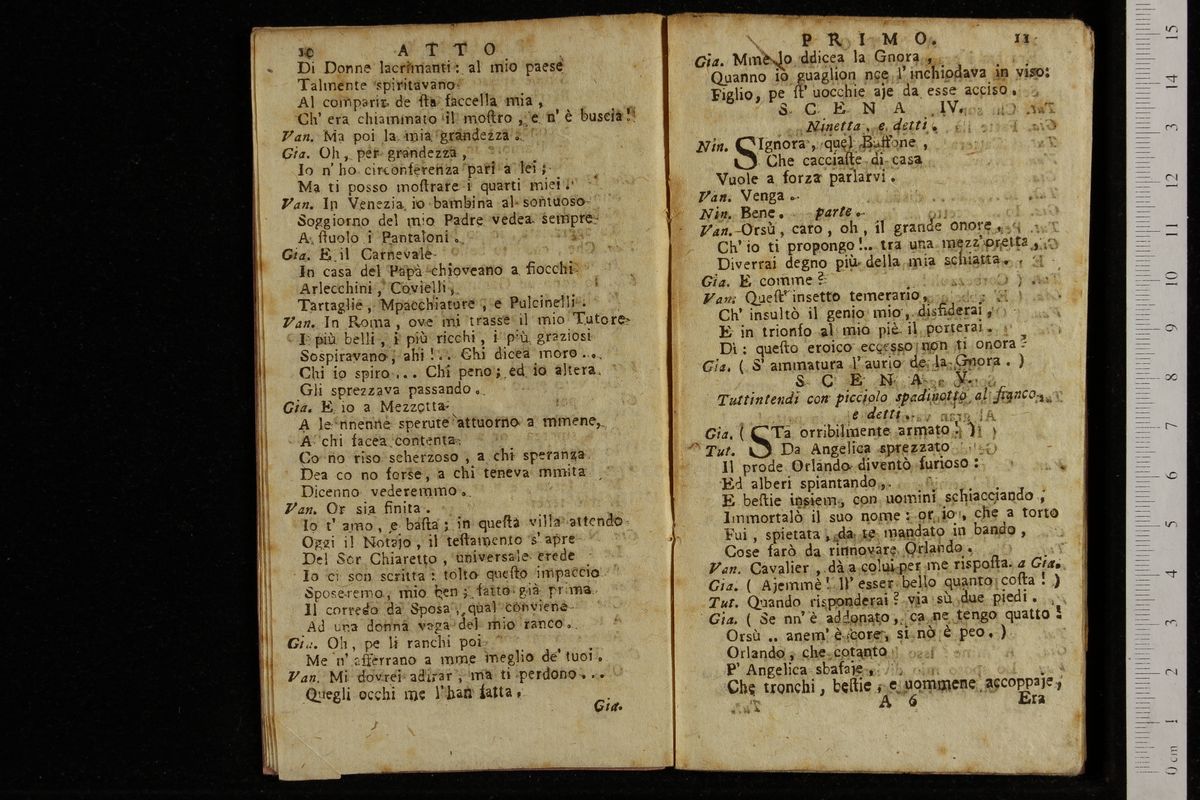 10 ATTO
Di Donne lacrimanti: al mio paese
Talmente spiritavano
Al comparir de ſta faccella mia,
Ch' era chiammato il moſtro, e n' è buscia!
Van. Ma poi la mia grandezza.
Gia. Oh, per grandezza,
Io n' ho circonferenza pari a lei;
Ma ti posso moſtrare i quarti miei.
Van. In Venezia io bambina al sontuoso
Soggiorno del mio Padre vedea sempre
A ſtuolo i Pantaloni.
Gia. E il Carnevale
In casa del Papà chioveano a fiocchi
Arlecchini, Covielli,
Tartaglie, Mpacchiature, e Pulcinelli.
Van. In Roma, ove mi trasse il mio Tutore
I più belli, i più ricchi, i più graziosi
Sospiravano, ahi!.. Chi dicea moro...
Chi io spiro... Chi peno; ed io altera
Gli sprezzava passando.
Gia. E io a Mezzotta
A le nnenne sperute attuorno a mmene,
A chi facea contenta
Co no riso scherzoso, a chi speranza
Dea co no forse, a chi teneva mmita
Dicenno vederemmo.
Van. Or sia finita.
Io t' amo, e baſta; in queſta villa attendo
Oggi il Notajo, il teſtamento s' apre
Del Ser Chiaretto, universale erede
Io ci son scritta: tolto queſto impaccio
Sposeremo, mio ben; fatto già prima
Il corredo da Sposa, qual conviene
Ad una donna vaga del mio ranco.
Gia. Oh, pe li ranchi poi
Me n' afferrano a mme meglio de' tuoi.
Van. Mi dovrei adirar, ma ti perdono...
Quegli occhi me l' han fatta.
Gia.
PRIMO. 11
Gia. Mme lo ddicea la Gnora,
Quanno io guaglion nce l' inchiodava in viso:
Figlio, pe ſt' uocchie aje da esse acciso.
SCENA IV.
Ninetta, e detti.
Nin. SIgnora, quel Buffone,
Che cacciaſte di casa
Vuole a forza parlarvi.
Van. Venga.
Nin. Bene. parte.
Van. Orsù, caro, oh, il grande onore,
Ch' io ti propongo!.. tra una mezz' oretta,
Diverrai degno più della mia schiatta.
Gia. E comme?
Van. Queſt' insetto temerario,
Ch' insultò il genio mio, disfiderai,
E in trionfo al mio piè il porterai.
Di: queſto eroico eccesso non ti onora?
Gia. (S' ammatura l' aurio de la Gnora.)
SCENA V.
Tuttintendi con picciolo spadinotto al fianco,
e detti.
Gia. (STa orribilmente armato!)
Tut. Da Angelica sprezzato
Il prode Orlando diventò furioso:
Ed alberi spiantando,
E beſtie insiem, con uomini schiacciando,
Immortalò il suo nome: or io, che a torto
Fui, spietata, da te mandato in bando,
Cose farò da rinnovare Orlando.
Van. Cavalier, dà a colui per me risposta. a Gia.
Gia. (Ajemmè! ll' esser bello quanto coſta!)
Tut. Quando risponderai? via sù due piedi.
Gia. (Se nn' è addonato, ca ne tengo quatto!
Orsù.. anem' e core, si nò è peo.)
Orlando, che cotanto
P' Angelica sbafaje,
Che tronchi, beſtie, e uommene accoppaje,
A 6 Era